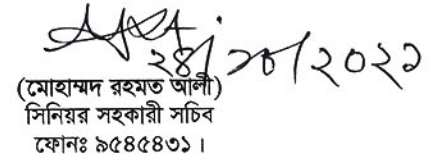 ২৪/১০/২০২১
(মোহাম্মদ রহমত আলী)
সিনিয়র সহকারী সচিব
ফোনঃ ৯৫৪৫৪৩১।